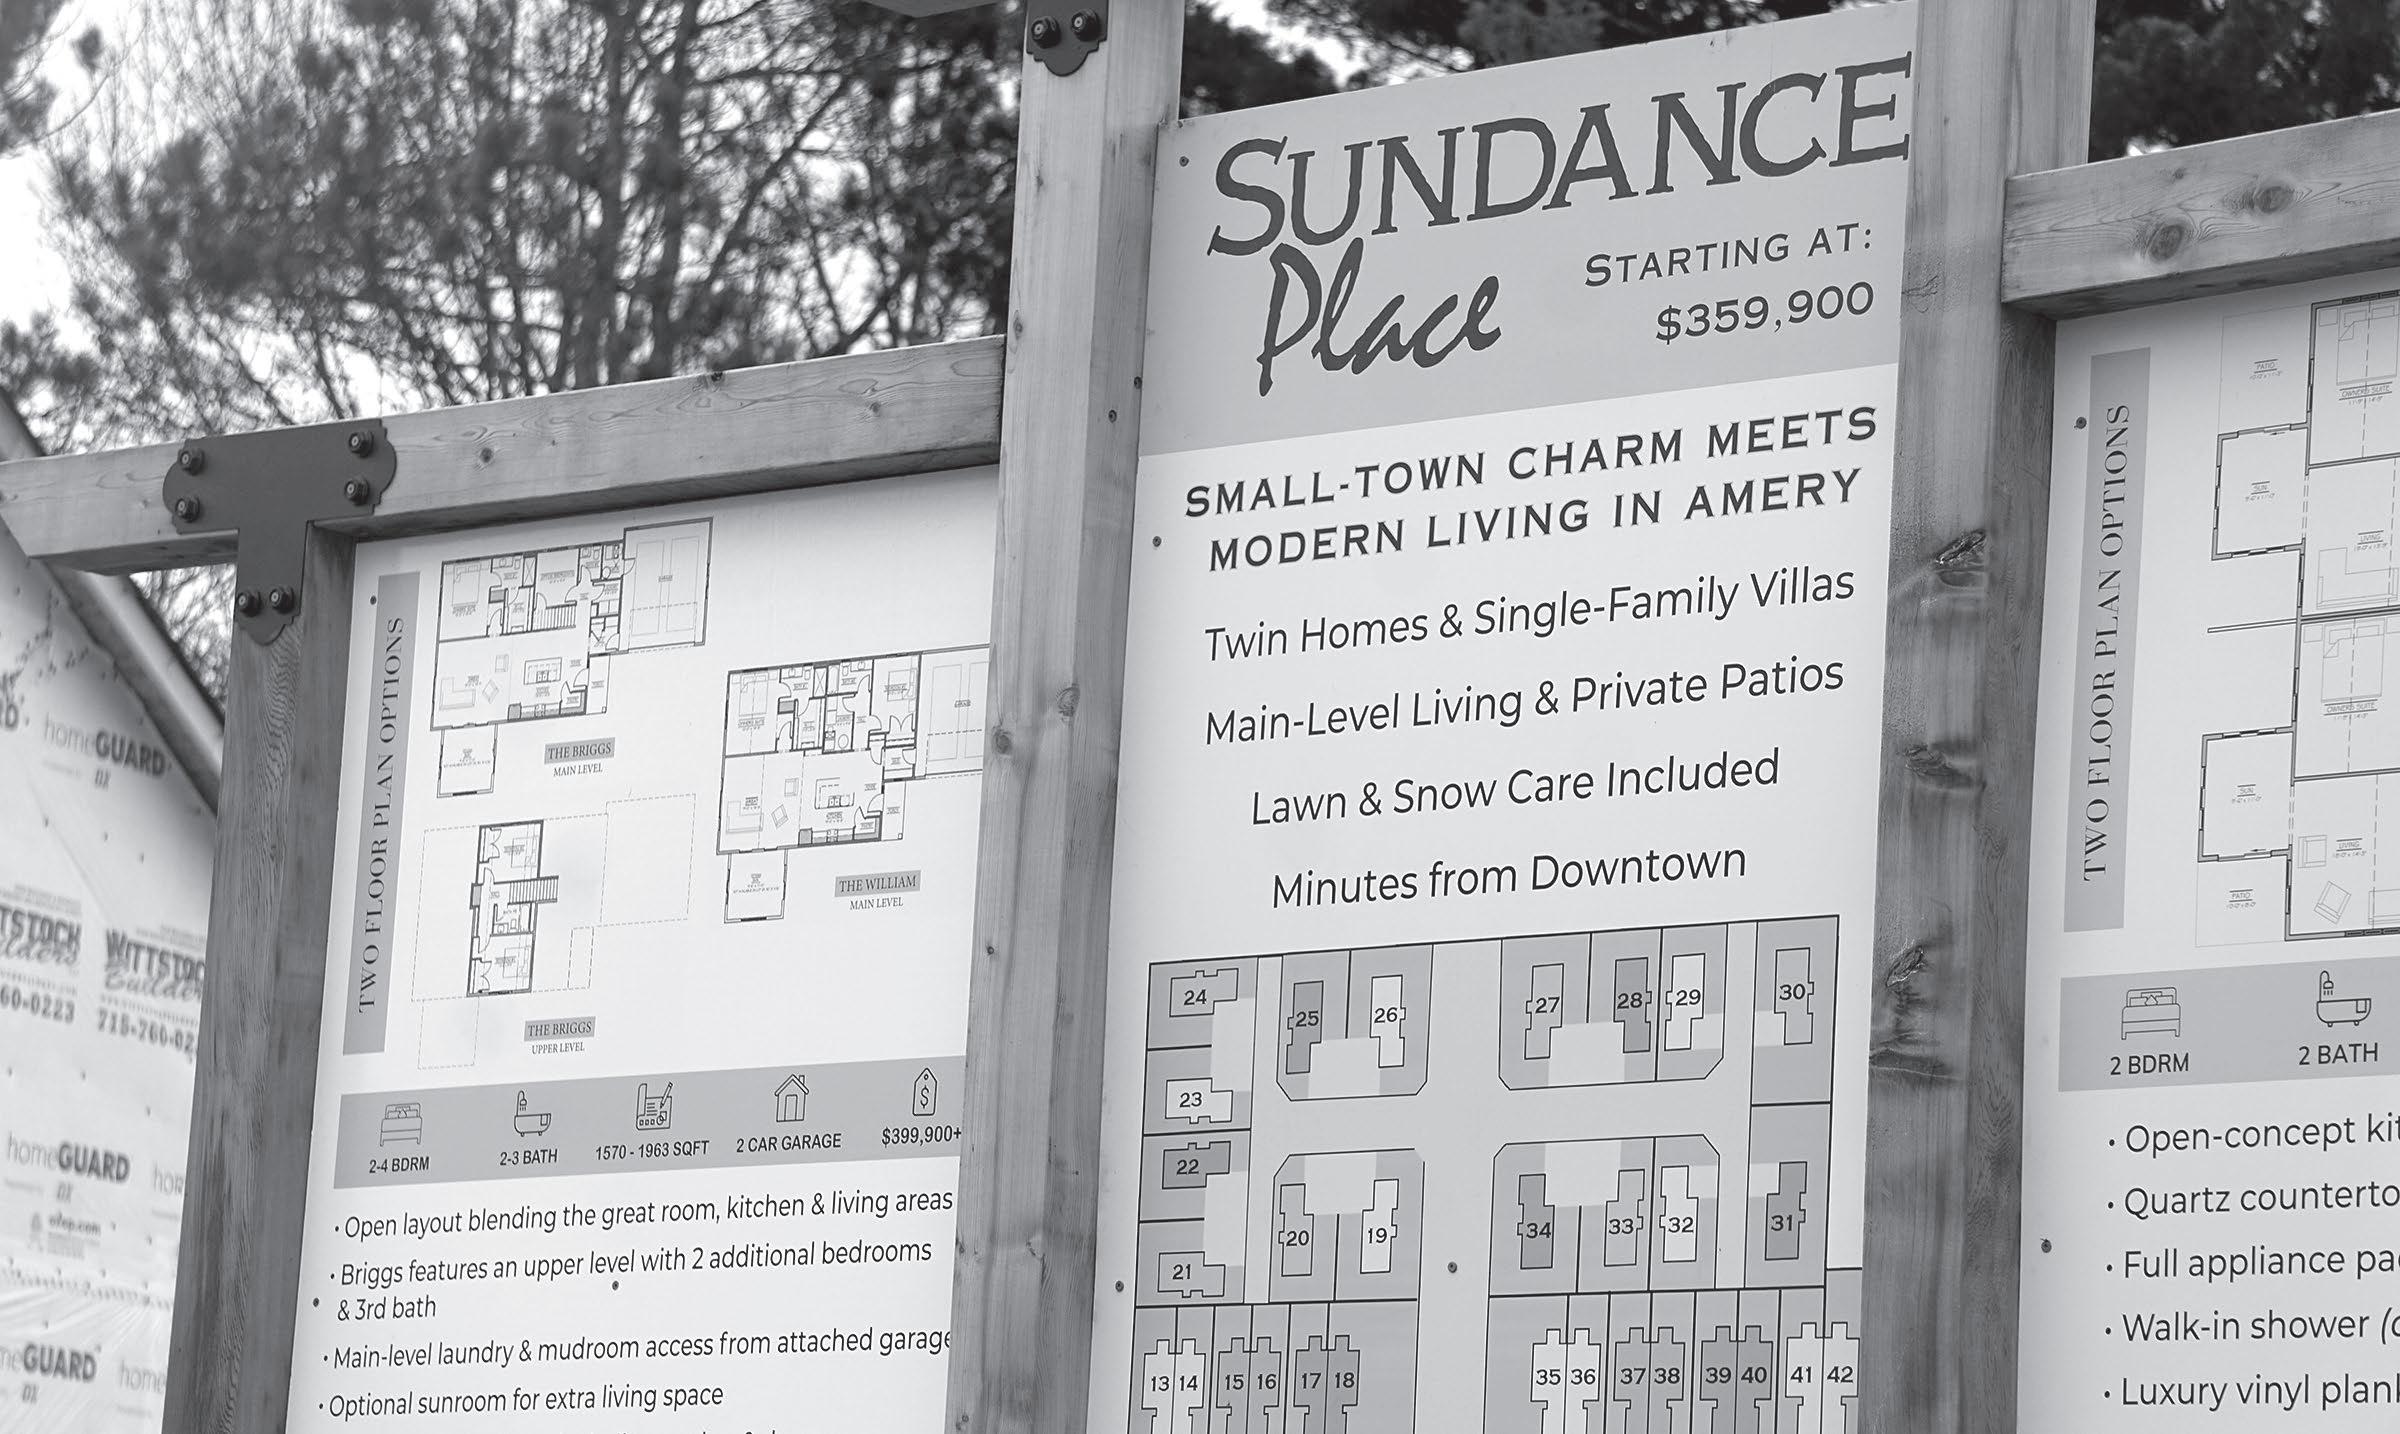 SUNDANCE
Place
STARTING AT:
$359,900
SMALL-TOWN CHARM MEETS
MODERN LIVING IN AMERY
Twin Homes & Single-Family Villas
Main-Level Living & Private Patios
Lawn & Snow Care Included
Minutes from Downtown
24
25
26
27
28
29
30
23
22
21
20
19
34
33
32
31
13 14 15 16 17 18
35 36 37 38 39 40 41 42
TWO FLOOR PLAN OPTIONS
THE BRIGGS
MAIN LEVEL
THE WILLIAM
MAIN LEVEL
THE BRIGGS
UPPER LEVEL
2-4 BDRM
2-3 BATH
1570 - 1963 SQFT
2 CAR GARAGE
$399,900+
• Open layout blending the great room, kitchen & living areas
• Briggs features an upper level with 2 additional bedrooms
& 3rd bath
• Main-level laundry & mudroom access from attached garage
• Optional sunroom for extra living space
TWO FLOOR PLAN OPTIONS
PATIO
OWNERS SUITE
SUN
LIVING
OWNERS SUITE
SUN
LIVING
PATIO
2 BDRM
2 BATH
• Open-concept kit
• Quartz counterto
• Full appliance pa
• Walk-in shower (
• Luxury vinyl plan
homeGUARD
WITTSTOC
Builder
715-760-02
60-0223
homeGUARD
GUARD
home